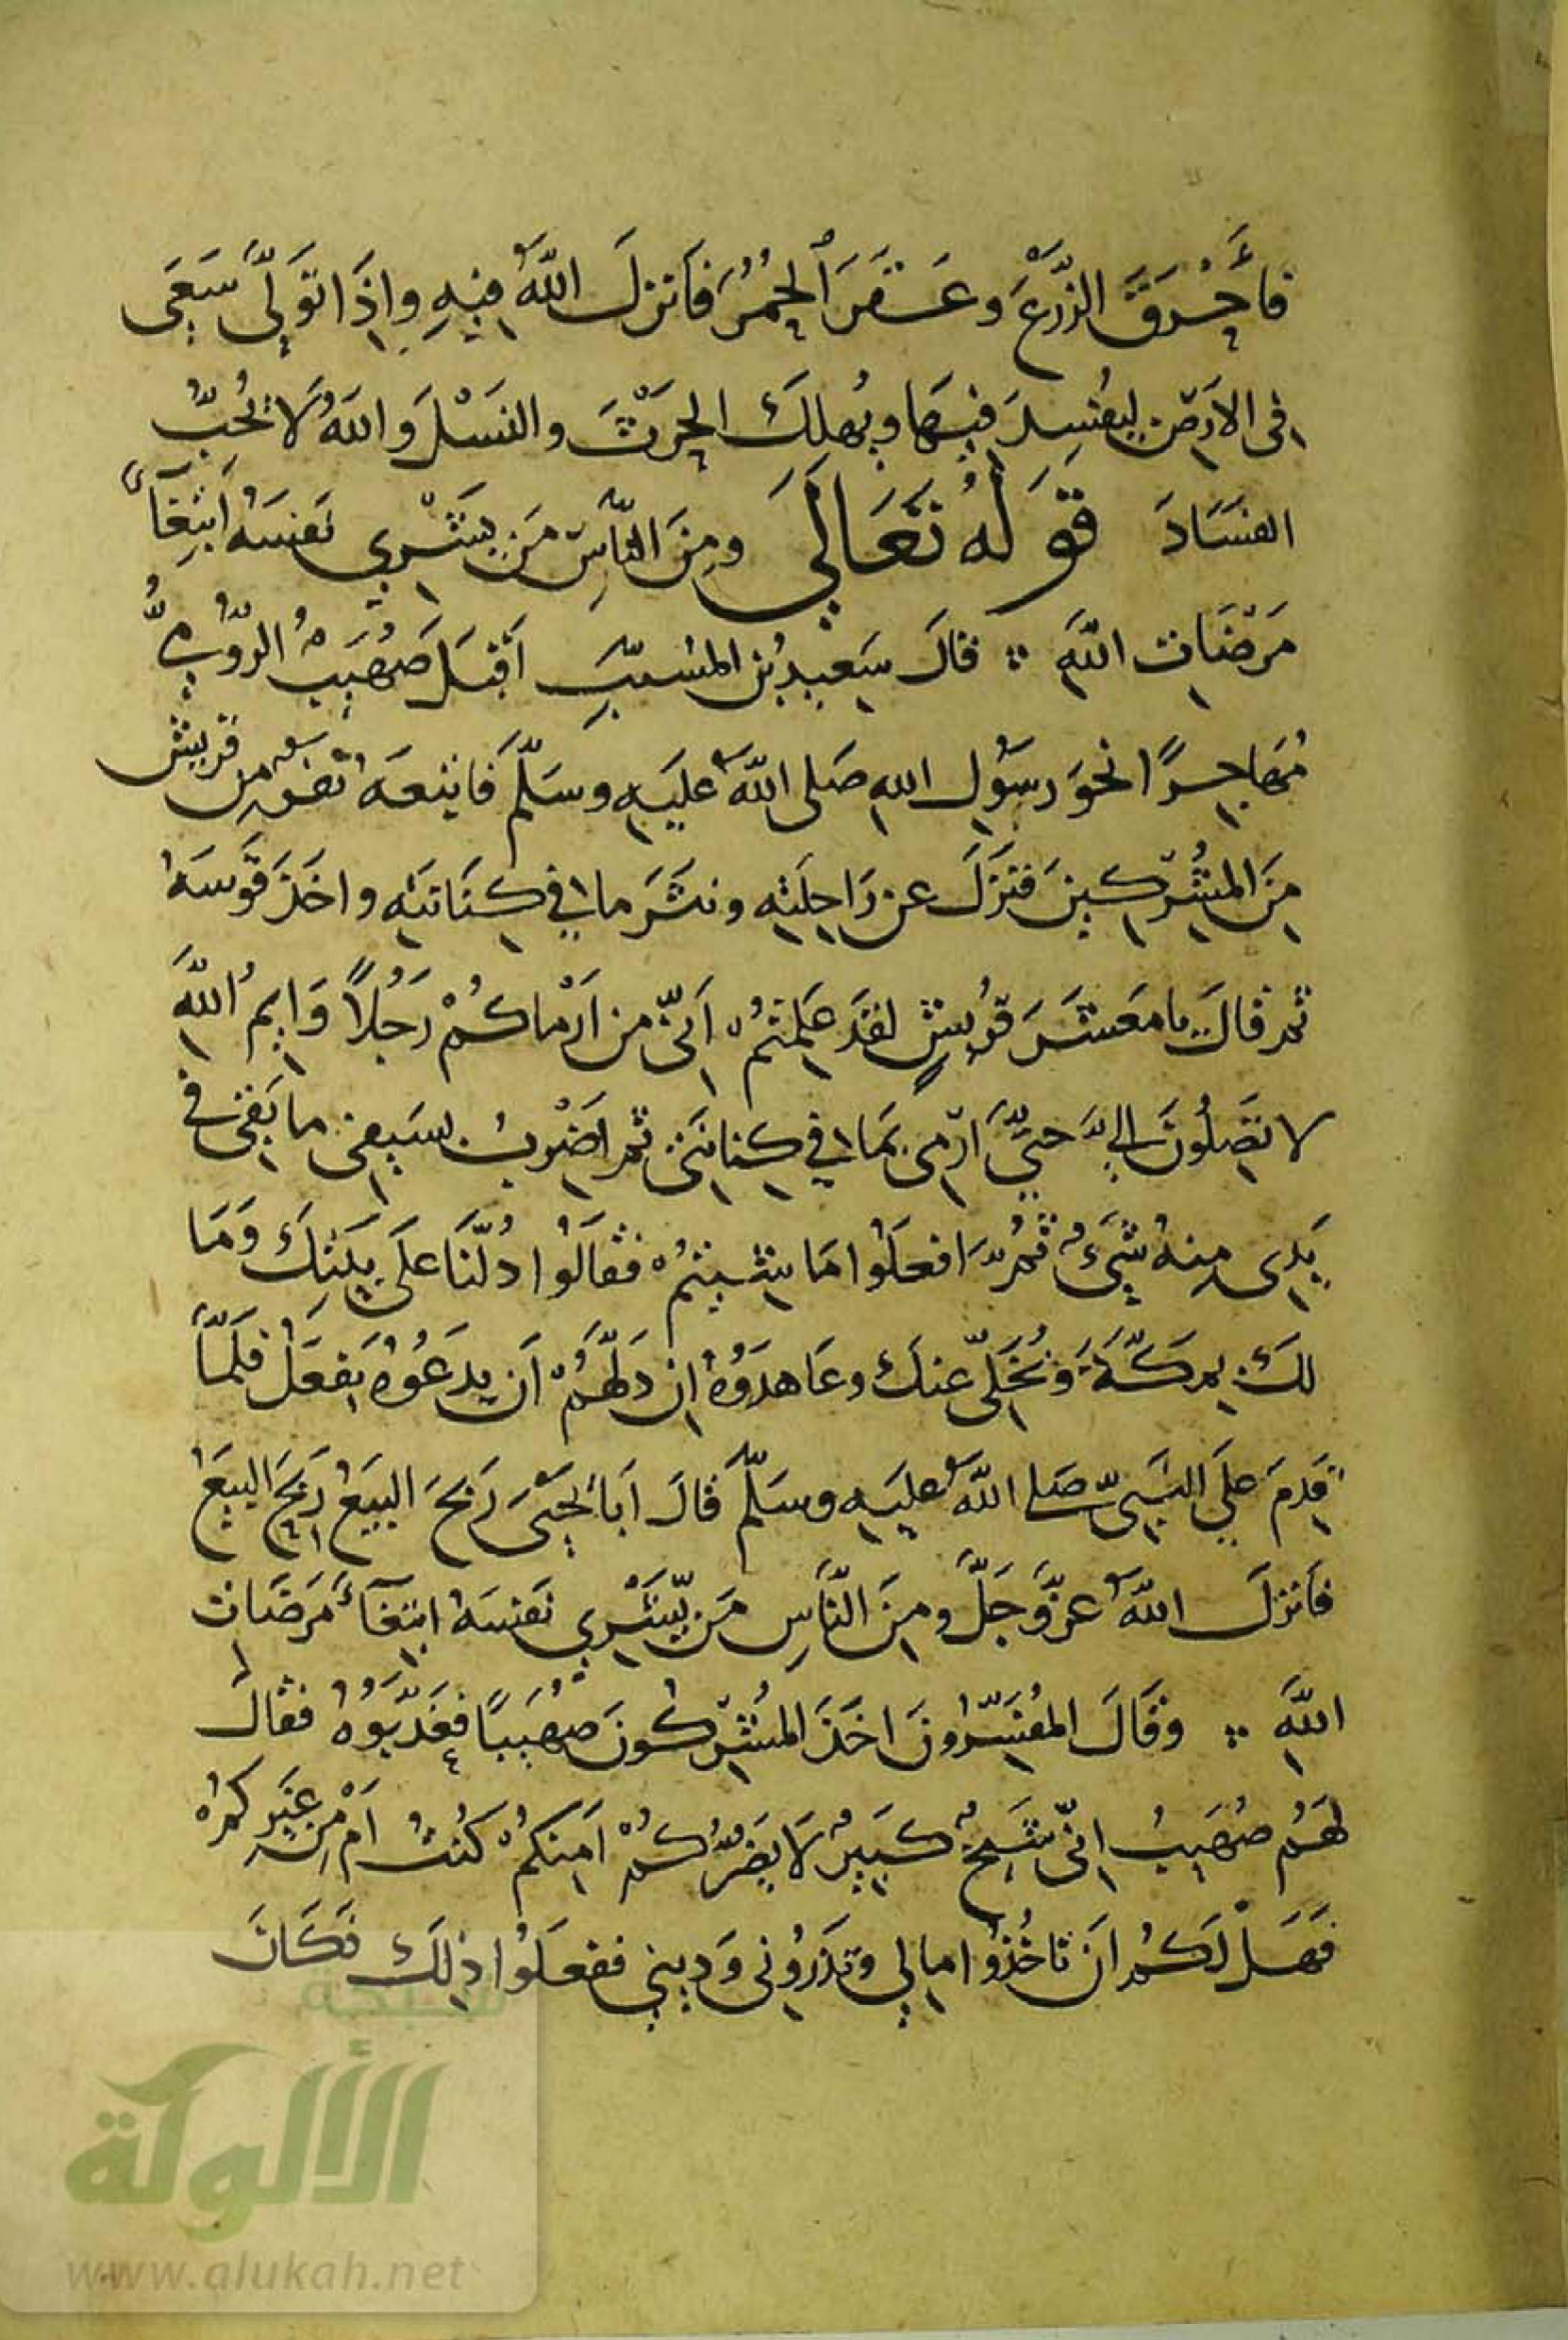 فأَحْرَقَ الزَّرْعَ وعَقَرَ الحُمُرَ فَأنزلَ اللَّهُ فيهِ وإذَا توَلَّى سَعَى
في الأرَضِ ليُفسِدَ فيهَا ويُهلِكَ الحَرْثَ والنسْلَ وَاللهُ لَا يُحِبُّ
الفسَادَ قَوْلُهُ تَعَالَى ومِنَ النَّاسِ مَن يَشْرِي نَفسَهُ ابْتِغَآءَ
مَرْضَاتِ اللَّهِ قالَ سَعِيدُ بنُ المسُيّبِ أَقبَلَ صُهَيبُ الرُّومِيُّ
مُهَاجِرًا نحوَ رسَوُلِ اللهِ صَلى اللَّهُ عليَهِ وسَلَّمَ فَاتبعَهُ نفرٌ من قريش
مِنَ المشُرِّكينَ فنَزَلَ عن رَاحِلَتِهِ ونثَرَ ما في كِنَانتَهِ واخَذَ قَوَسَهُ
ثمر قالَ يا مَعشَرَ قرُيشٍ لقدَ عَلِمتمُ أَنيِّ من ارْماكُمْ رَجُلاً وَايمُ اللَّهِ
لا تَصِلُونَ إليَّ حَتَّى ارَمي بمَا في كِنانتيِ ثم اضَرْبُ بسَيفي ما بَقي في
يَدِي مِنهُ شَيءٌ ثمُرَّ افعَلوُا مَا شِئتمُ فقَالَوُا دُلَّنَا علَى بيَتِكَ وَمَا
لكَ بمِكَّةَ وَنُخَلّي عنكَ وعَاهدَوُهُ إن دَلَّهُمْ أن يدَعَوُهُ يَفعَلْ فَلَمَّا
قَدِمَ علَى النبَيِّ صَلى اللَّهُ عليَهِ وسَلَّمَ قَالَ أبَا يَحْيَى رَبحَ البيَعُ رَبحَ البيَعُ
فأنزلَ اللَّهُ عزَّوَجَلَّ ومِنَ النَّاسِ مَن يَّشْرِي نَفسَهُ ابتغَآءَ مَرضَاتِ
اللَّهِ وَقَالَ المفُسَّرِوُنَ اخَذَ المشُرِّكُونَ صُهَيبًا فعَذَّبوُهُ فقالَ
لهَمُ صُهَيبُ إنيّ شَيخٌ كَبيَرٌ لَا يَضُرُّكُمْ أمَنِكمُ كُنتُ أم مِن غيَرِ كمرُ
فَهَلْ لَكُمُ أنَ تأخُذوُا مالِي وَتذَرُوني وَدِينيِ ففعَلَوُا ذلِكَ فَكَانَ
شبكة
الألوكة
www.alukah.net